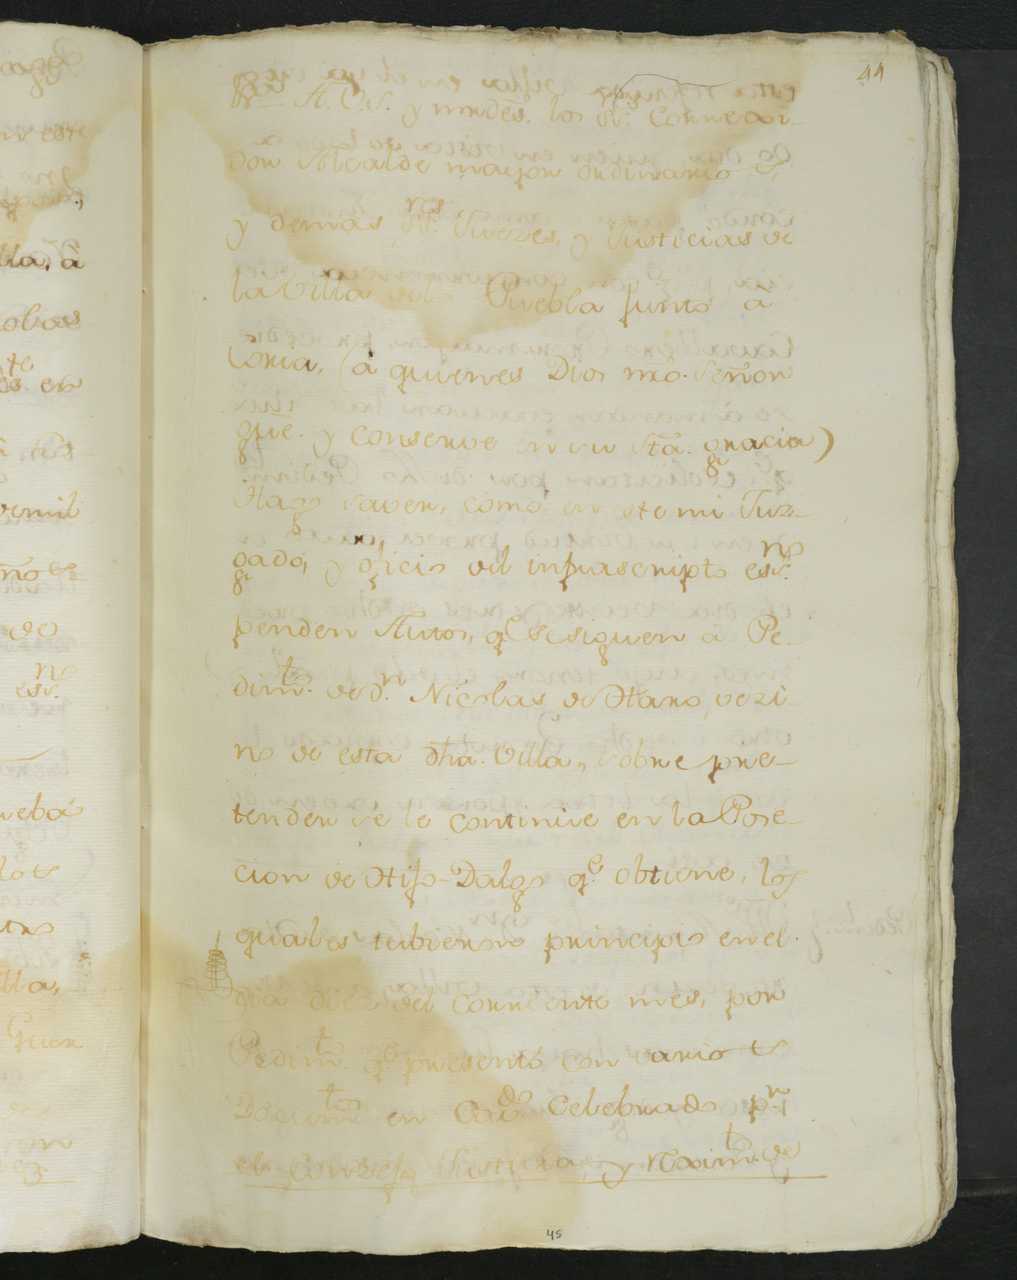 44
y mrds. los SS. Correxi-
dor Alcalde mayor Ordinario &
y demas SSres. Juezes, y Justicias de
la Villa de la Puebla junto a
Coria, (á quienes Dios nro. Señor
gue. y conserve en su Sta. gracia)
Hago saver, como en este mi Juz-
gado, y oficio del infrascripto essno.
penden Autos, qe. se siguen á Pe-
dimto. de Dn. Nicolas de Haro, vezi-
no de esta dha. Villa, sobre pre-
tender se le continue en la Pose-
cion de Hijo-Dalgo qe. obtiene, los
quales tubieron principio en el
dia doze del corriente mes, por
Pedimto. qe. presentó con varios
Documtos. en Cavdo. Celebrado pr.
el Consejo Justicia, y Reximto. de
45